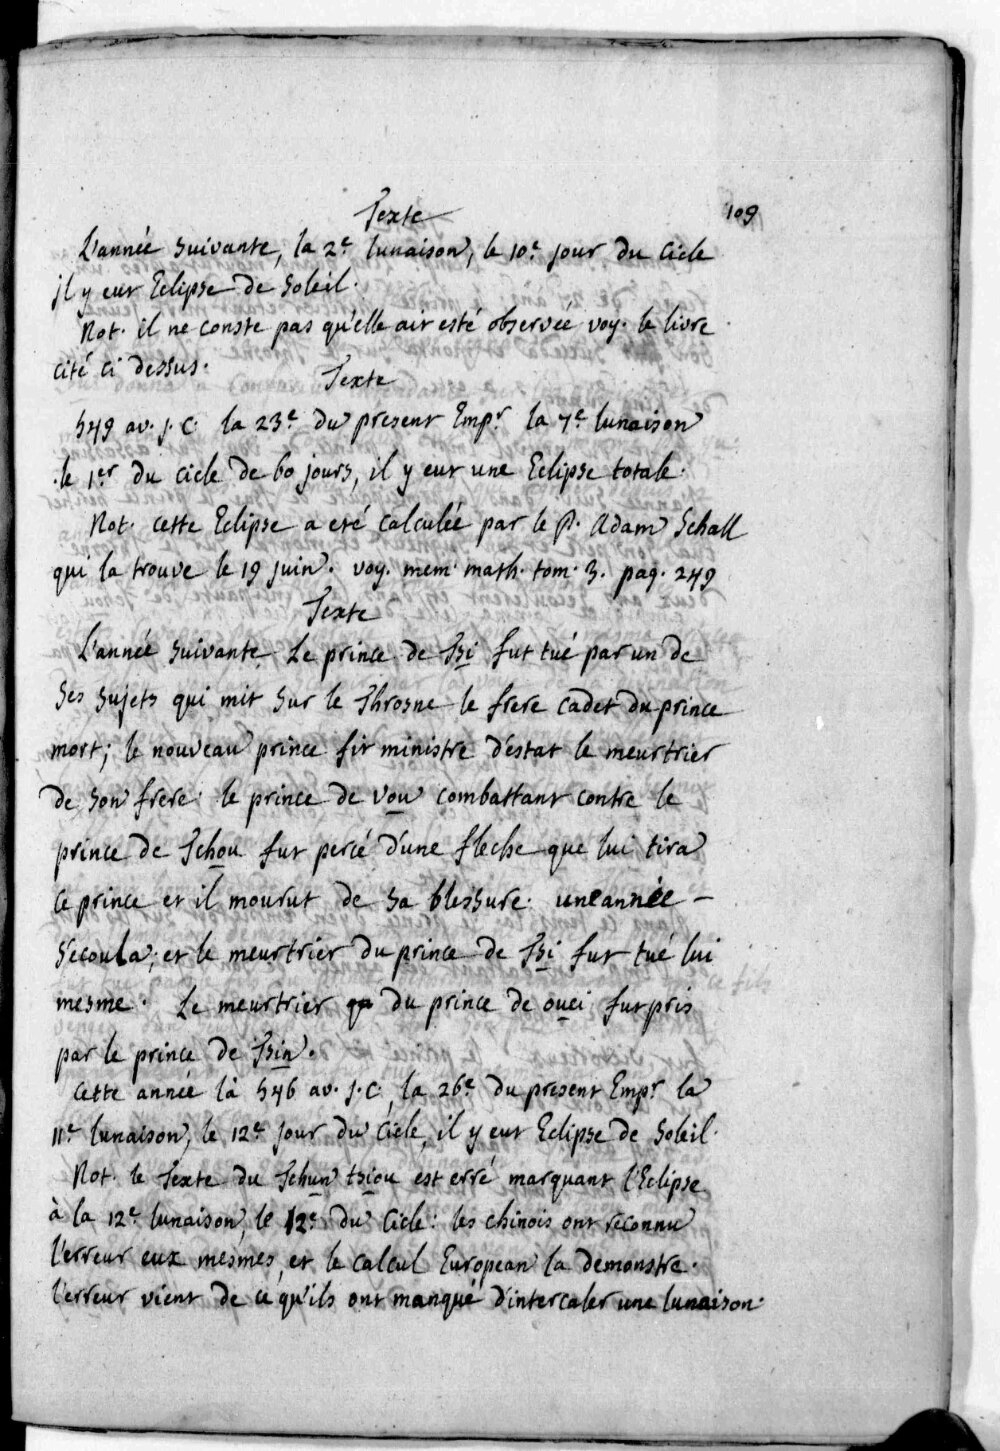 Texte
109
L'année suivante, la 2.e lunaison, le 10.e jour du cicle
jl y eut Eclipse de soleil.
Not. il ne conste pas qu'elle ait esté observée voy. le livre
cité ci dessus.
Texte
549 av. j. C. la 23.e du present Emp.r la 7.e lunaison
le 1.er du cicle de 60 jours, il y eut une Eclipse totale.
Not. cette Eclipse a eté calculée par le P. Adam Schall
qui la trouve le 19 juin. voy. mem. math. tom. 3. pag. 249
Texte
L'année suivante Le prince de Tsi fut tué par un de
ses sujets qui mit sur le Throsne le frere cadet du prince
mort; le nouveau prince fit ministre d'estat le meurtrier
de son frere. le prince de vou combattant contre le
prince de Tchou fut percé d'une fleche que lui tira
ce prince et il mourut de sa blessure. une année
s'ecoula, et le meurtrier du prince de Tsi fut tué lui
mesme. Le meurtrier du prince de ouei fut pris
par le prince de Tsin.
Cette année là 546 av. j. C. la 26.e du present Emp.r la
11.e lunaison, le 12.e jour du Cicle, il y eut Eclipse de soleil.
Not. le Texte du Tchun tsiou est erré marquant l'Eclipse
à la 12.e lunaison, le 12.e du Cicle: les chinois ont reconnu
l'erreur eux mesmes, et le calcul European la demonstre.
l'erreur vient de ce qu'ils ont manqué d'intercaler une lunaison.